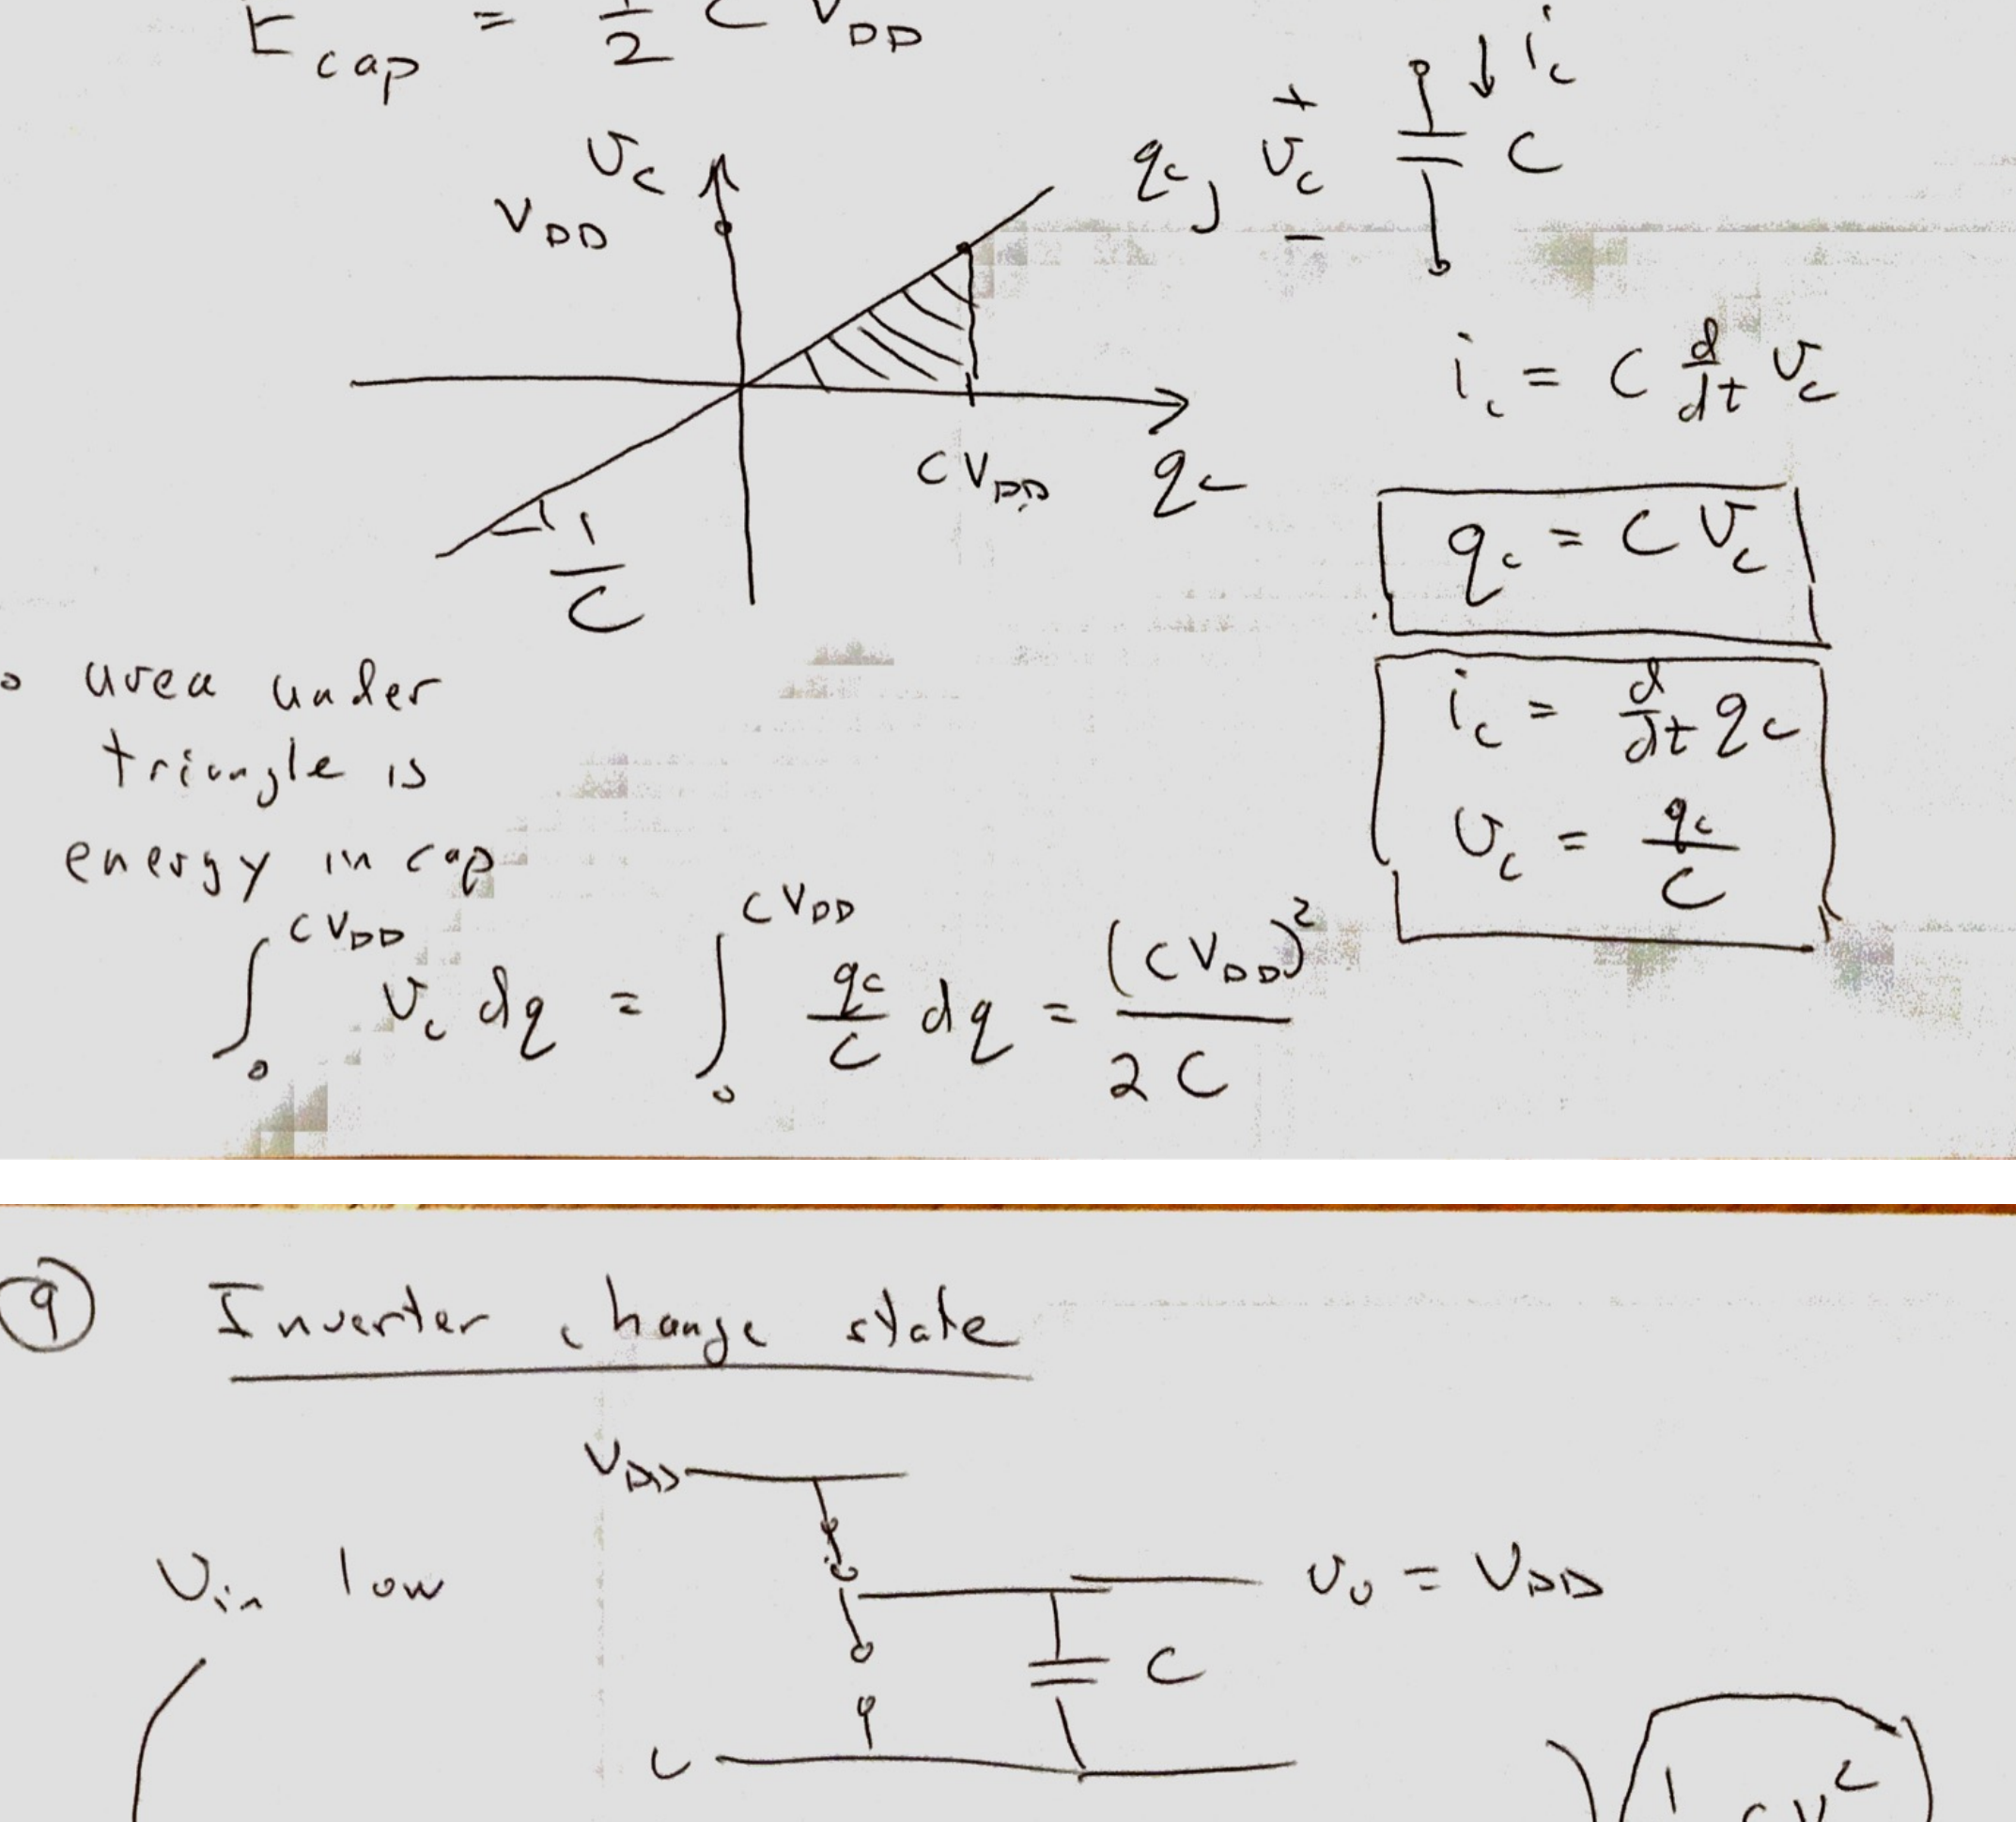 E_cap = 1/2 C V_DD
v_c
V_DD
q_c, + v_c − C ↓ i_c
i_c = C d/dt v_c
C V_DD
q_c
1/C
q_c = C v_c
i_c = d/dt q_c
v_c = q_c/C
area under
triangle is
energy in cap
∫_0^{C V_DD} v_c dq = ∫_0^{C V_DD} q_c/C dq = (C V_DD)^2 / 2C
9 Inverter change state
V_DD
v_in low
v_o = V_DD
C